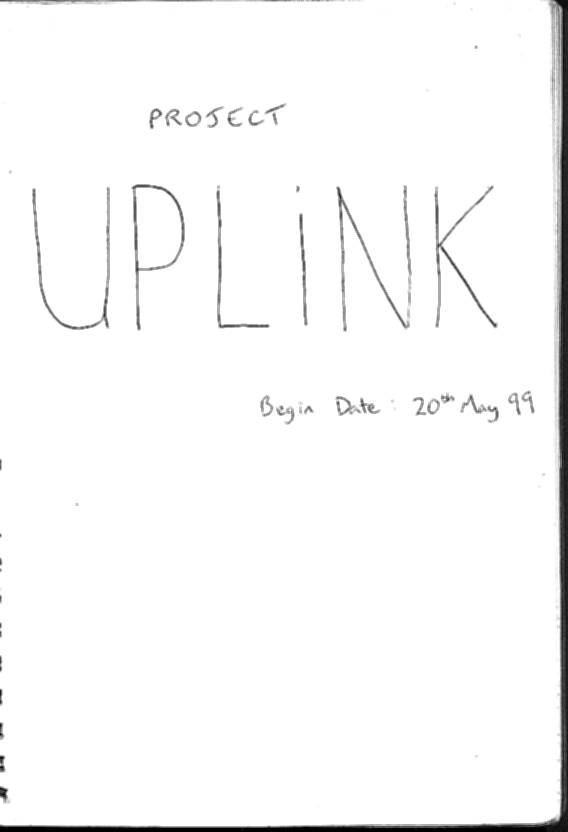 PROJECT
UPLiNK
Begin Date: 20th May 99